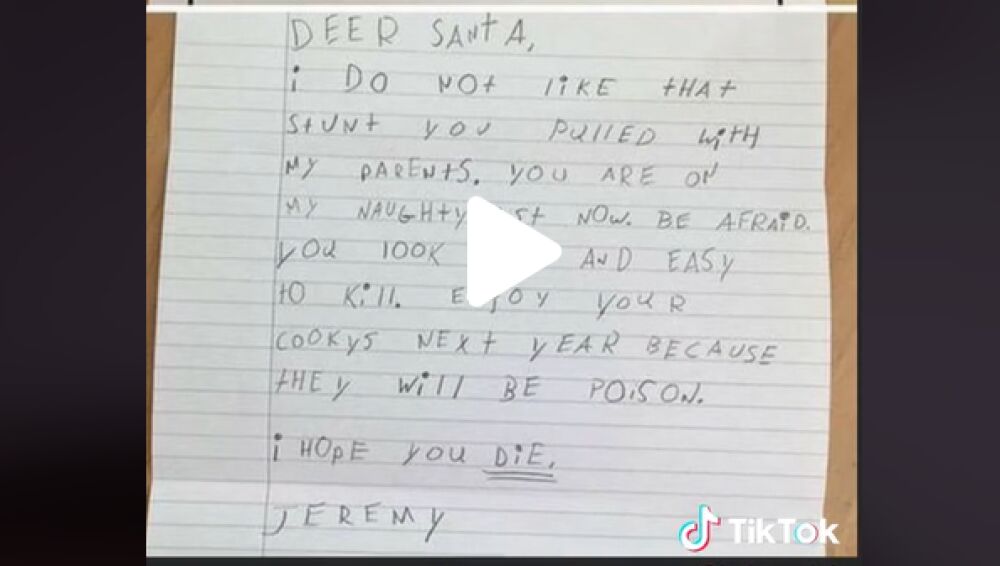 DEER SANTA,
i DO NOt liKE tHAt
StUNt YOU PUllED WitH
MY PARENtS. YOU ARE ON
MY NAUGHtY NOW. BE AFRAiD.
YOU lOOK AND EASY
tO Kill. YOUR
COOKYS NEXt YEAR BECAUSE
tHEY Will BE POiSON.
i HOpE YOU DiE.
JEREMY
TikTok